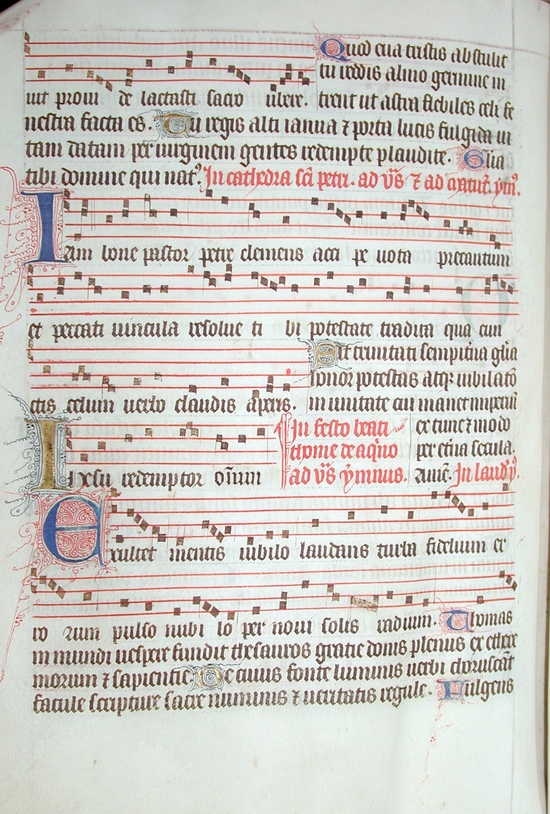 Quod eua tristis abstulit
tu reddis almo germine in
uit proui de lactasti sacro ubere. trent ut astra flebiles celi fe
nestra facta es. Tu regis alti ianua ⁊ porta lucis fulgida ui
tam datam per uirginem gentes redempte plaudite. Glia
tibi domine qui nat⁹. In cathedra sci petri. ad vs̄ ⁊ ad matut. ymn⁹.
Iam bone pastor petre clemens acci pe uota precantum
et peccati uincula resolue ti bi potestate tradita qua cun
Sit trinitati sempiterna glia
honor potestas atqꝫ iubilatō
ctis celum uerbo claudis aperis. in unitate cui manet imperiū
In festo beati et tunc ⁊ modo
thome de aq̄no per et̄na secula.
Ihesu redemptor om̄ium ad vs̄ ymnus. Amē. In laud⁹.
Exultet mentis iubilo laudans turba fidelium er
ro rum pulso nubi lo per noui solis radium. Thomas
in mundi uespere fudit thesauros gratie donis plenus ex ethere
morum ⁊ sapientie. De cuius fonte luminis uerbi choruscāt
facule scripture sacre numinis ⁊ ueritatis regule. Fulgens